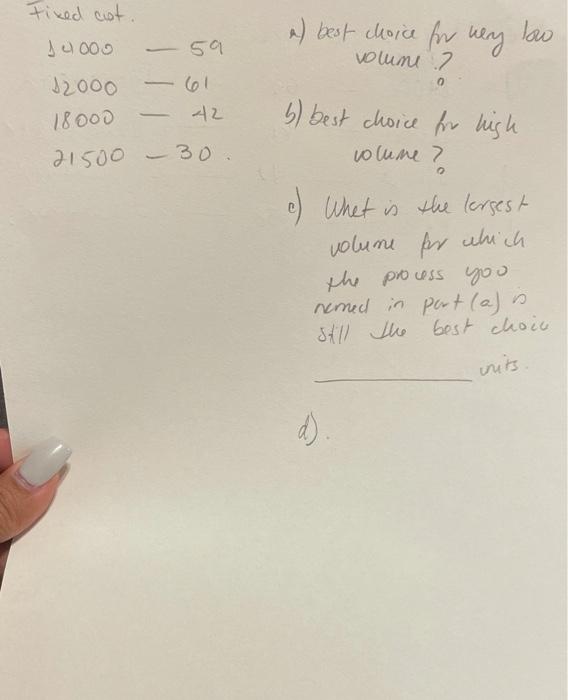 Fixed cost.
14000 — 59
12000 — 61
18000 — 42
21500 — 30.
a) best choice for very low
volume?
b) best choice for high
volume?
c) What is the largest
volume for which
the process you
named in part (a) is
still the best choice
units.
d).